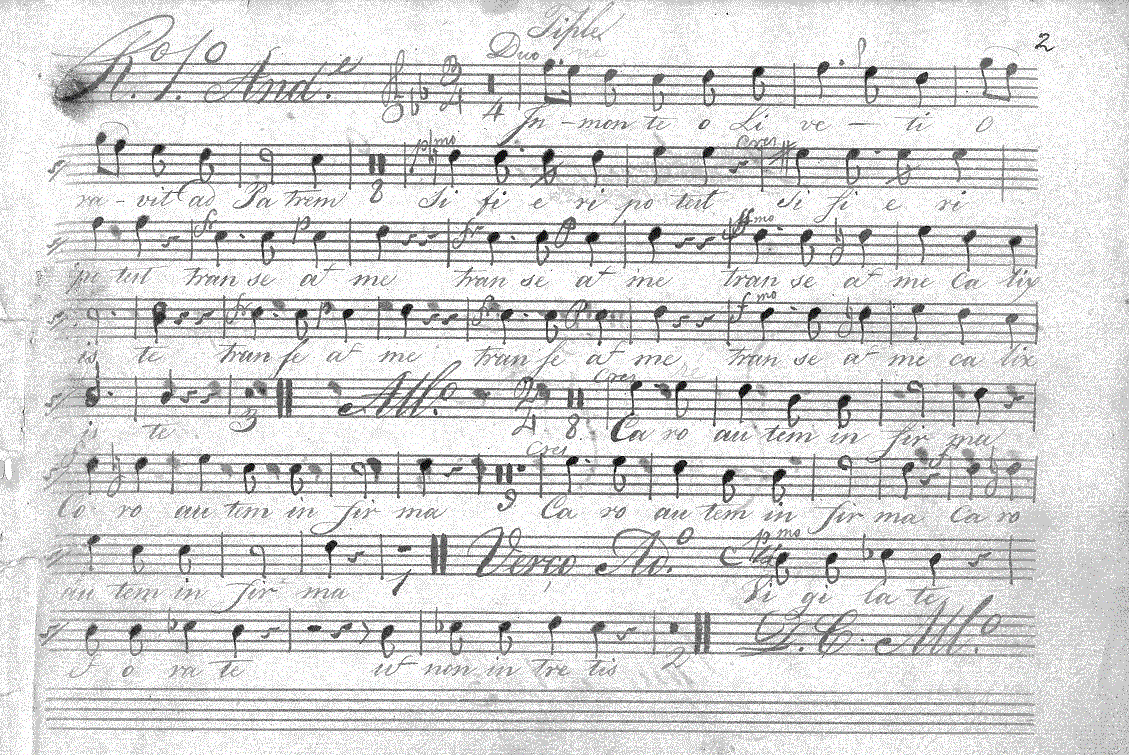 Tiple
2
R.º 1.º And.e Duo 3 4 4
In - mon te o Li ve - ti O
p.mo cres
8
ra - vit ad Pa trem Si fi e ri po test Si fi e ri
fr p fr p ff.mo
po test tran se at me tran se at me tran se at me Ca lix
fr p fr p f.mo
is te tran se at me tran se at me tran se at me ca lix
3 All.º 2 4 8 Cres
is te Ca ro au tem in fir ma
Cres
9
Co ro au tem in fir ma Ca ro au tem in fir ma Ca ro
1 Verso Ad.º C p.mo
au tem in fir ma Vi gi la te
2 D. C. All.º
o ra te ut non in tre tis